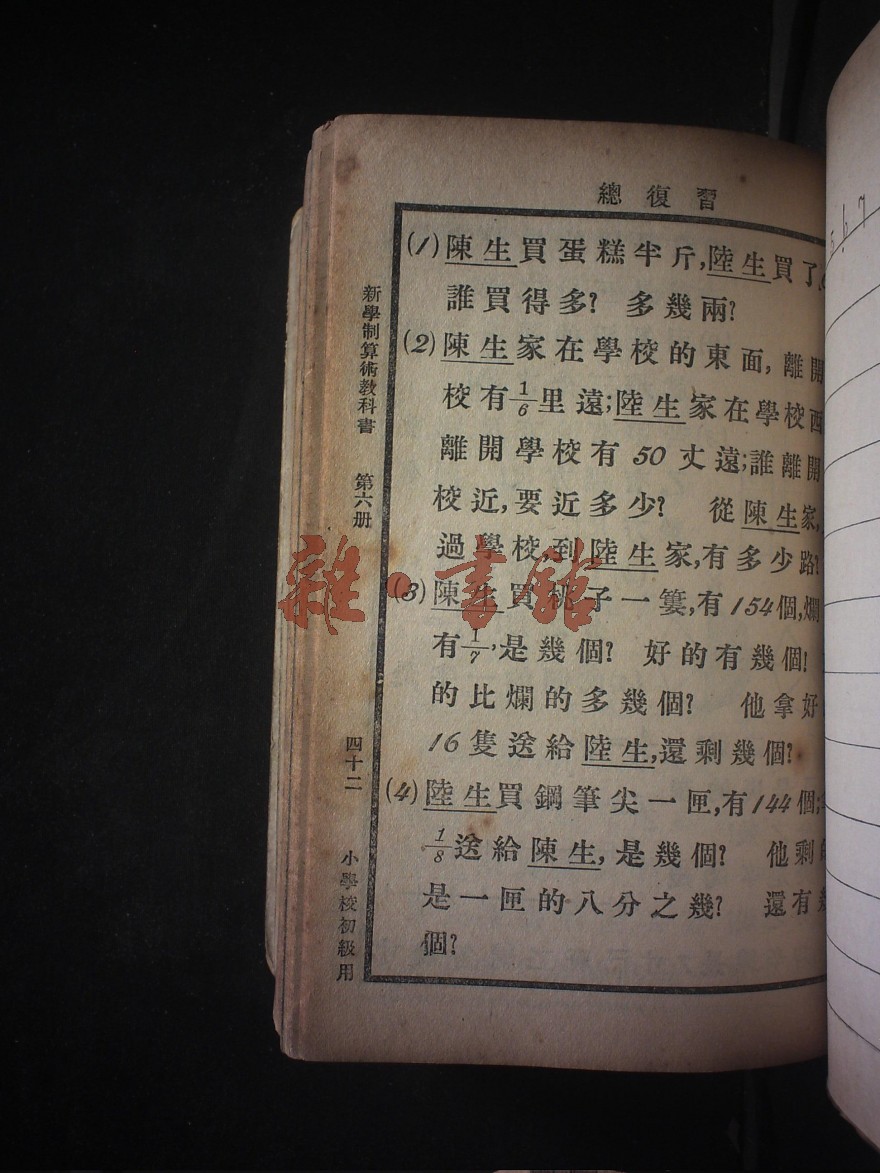 總復習
(1)陳生買蛋糕半斤,陸生買了
誰買得多? 多幾兩?
(2)陳生家在學校的東面,離開
校有1/6里遠;陸生家在學校西
離開學校有50丈遠;誰離開
校近,要近多少? 從陳生家,
過學校,到陸生家,有多少路?
(3)陳生買桃子一簍,有154個,爛
有1/7,是幾個? 好的有幾個!
的比爛的多幾個? 他拿好
16隻送給陸生,還剩幾個?
(4)陸生買鋼筆尖一匣,有144個;
1/8送給陳生,是幾個? 他剩
是一匣的八分之幾? 還有幾
個?
新學制算術教科書 第六册 四十二 小學校初級用
雜·書館
5 6 7